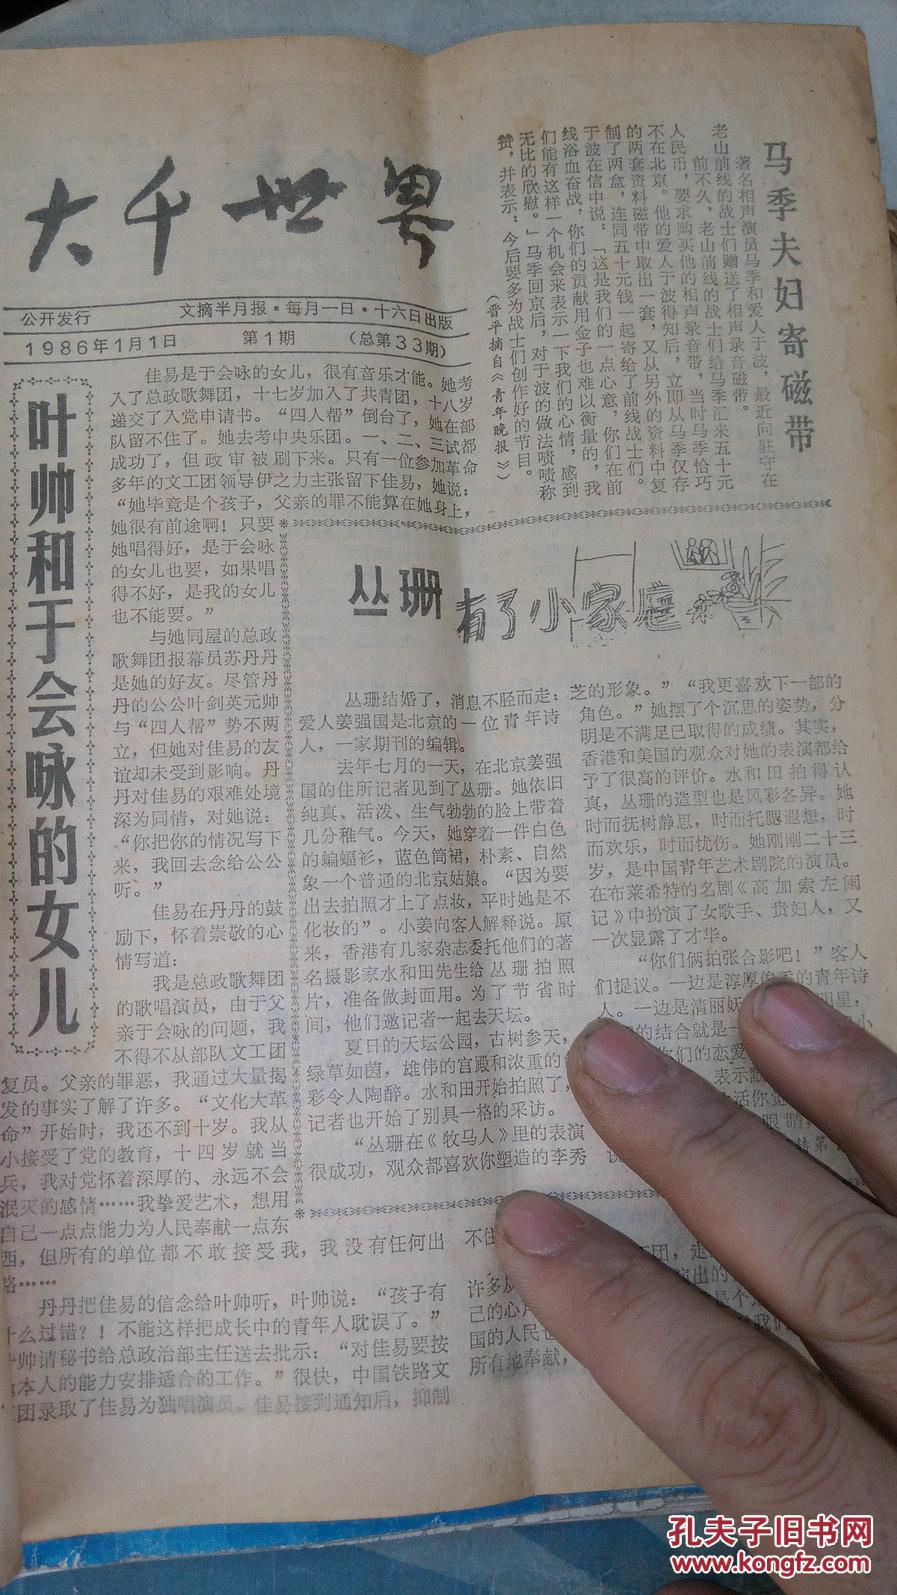 大千世界
公开发行
文摘半月报·每月一日·十六日出版
1986年1月1日
第1期
（总第33期）
马季夫妇寄磁带
著名相声演员马季和爱人于波，最近向驻守在
老山前线的战士们赠送了相声录音磁带。
前不久，老山前线的战士们给马季汇来五十元
人民币，要求购买他的相声录音带，当时马季恰巧
不在北京。他的爱人于波得知后，立即从马季仅存
的两套资料磁带中取出一套，又从另外的资料中复
制了两盒，连同五十元钱一起寄给了前线战士们。
于波在信中说：“这是我们的一点心意，你们在前
线浴血奋战，你们的贡献用金子也难以衡量的，我
们能有这样一个机会来表示一下我们的心情，感到
无比的欣慰。”马季回京后，对于波的做法啧啧称
赞，并表示：今后要多为战士们创作好的节目。
（晋平摘自《青年晚报》）
叶帅和于会咏的女儿
佳易是于会咏的女儿，很有音乐才能。她考
入了总政歌舞团，十七岁加入了共青团，十八岁
递交了入党申请书。“四人帮”倒台了，她在部
队留不住了。她去考中央乐团。一、二、三试都
成功了，但政审被刷下来。只有一位参加革命
多年的文工团领导伊之力主张留下佳易，她说：
“她毕竟是个孩子，父亲的罪不能算在她身上，
她很有前途啊！只要
她唱得好，是于会咏
的女儿也要，如果唱
得不好，是我的女儿
也不能要。”
与她同屋的总政
歌舞团报幕员苏丹丹
是她的好友。尽管丹
丹的公公叶剑英元帅
与“四人帮”势不两
立，但她对佳易的友
谊却未受到影响。丹
丹对佳易的艰难处境
深为同情，对她说：
“你把你的情况写下
来，我回去念给公公
听。”
佳易在丹丹的鼓
励下，怀着崇敬的心
情写道：
我是总政歌舞团
的歌唱演员，由于父
亲于会咏的问题，我
不得不从部队文工团
复员。父亲的罪恶，我通过大量揭
发的事实了解了许多。“文化大革
命”开始时，我还不到十岁。我从
小接受了党的教育，十四岁就当
兵，我对党怀着深厚的、永远不会
泯灭的感情……我挚爱艺术，想用
自己一点点能力为人民奉献一点东
西，但所有的单位都不敢接受我，我没有任何出
路……
丹丹把佳易的信念给叶帅听，叶帅说：“孩子有
什么过错？！不能这样把成长中的青年人耽误了。”
叶帅请秘书给总政治部主任送去批示：“对佳易要按
本人的能力安排适合的工作。”很快，中国铁路文
团录取了佳易为独唱演员。佳易接到通知后，抑制
不住
团，走
许多从
演出的
己的心
是个
国的人民
我们
所有地奉献，
丛珊有了小家庭
丛珊结婚了，消息不胫而走：
爱人姜强国是北京的一位青年诗
人，一家期刊的编辑。
去年七月的一天，在北京姜强
国的住所记者见到了丛珊。她依旧
纯真、活泼、生气勃勃的脸上带着
几分稚气。今天，她穿着一件白色
的蝙蝠衫，蓝色筒裙，朴素、自然
象一个普通的北京姑娘。“因为要
出去拍照才上了点妆，平时她是不
化妆的”。小姜向客人解释说。原
来，香港有几家杂志委托他们的著
名摄影家水和田先生给丛珊拍照
片，准备做封面用。为了节省时
间，他们邀记者一起去天坛。
夏日的天坛公园，古树参天，
绿草如茵，雄伟的宫殿和浓重的色
彩令人陶醉。水和田开始拍照了，
记者也开始了别具一格的采访。
“丛珊在《牧马人》里的表演
很成功，观众都喜欢你塑造的李秀
芝的形象。”“我更喜欢下一部的
角色。”她摆了个沉思的姿势，分
明是不满足已取得的成绩。其实，
香港和美国的观众对她的表演都给
予了很高的评价。水和田拍得认
真，丛珊的造型也是风彩各异。她
时而抚树静思，时而托腮遐想；时
而欢乐，时而忧伤。她刚刚二十三
岁，是中国青年艺术剧院的演员。
在布莱希特的名剧《高加索左阑
记》中扮演了女歌手、贵妇人，又
一次显露了才华。
“你们俩拍张合影吧！”客人
们提议。一边是淳厚俊秀的青年诗
人。一边是清丽妩
明星，
的结合就是一
小
你们的恋爱
表示默
活你
眼睛，
说
孔夫子旧书网
www.kongfz.com